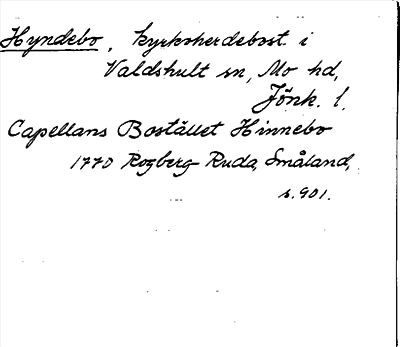 Hyndebo, kyrkoherdebost. i
Valdshult sn, Mo hd,
Jönk. l.
Capellans Bostället Hinnebo
1770 Rogberg Ruda, Småland,
s. 901.